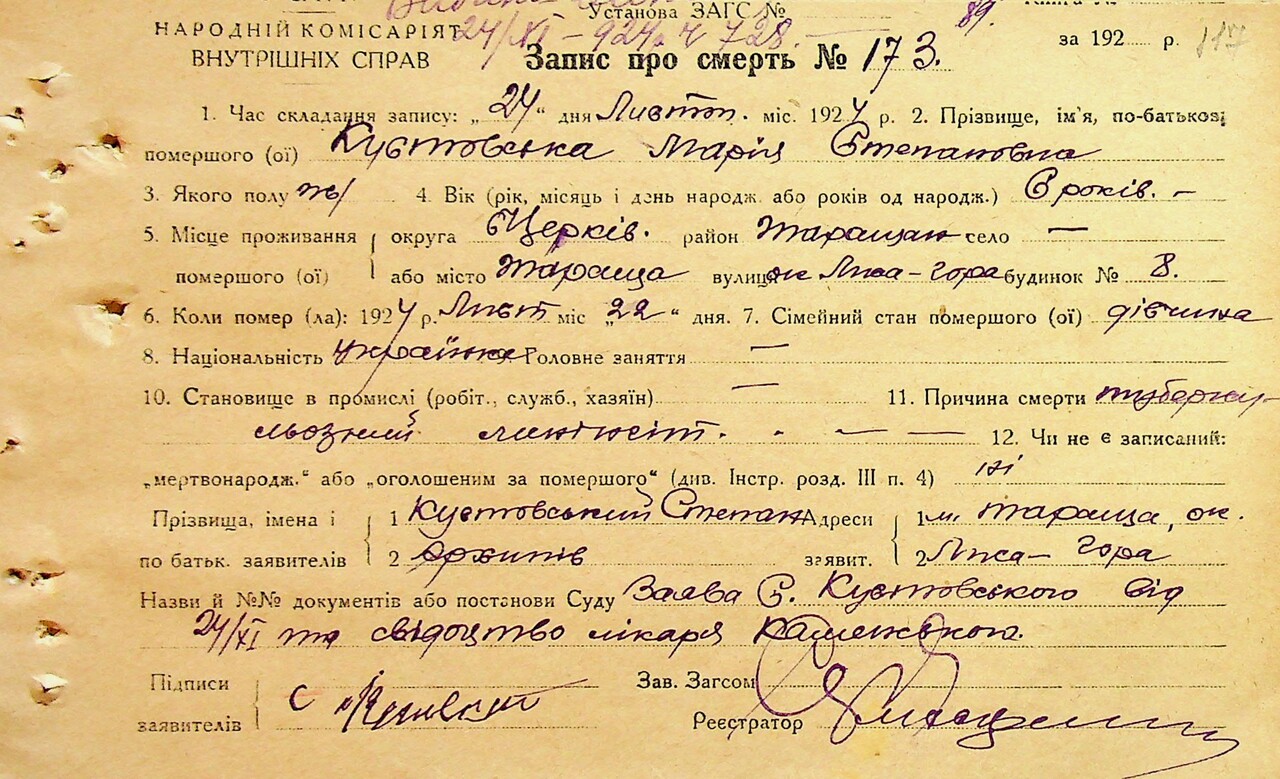 Установа ЗАГС № 89.
НАРОДНІЙ КОМІСАРІЯТ 24/XI – 924 р. ч 728. за 192 р. 117
ВНУТРІШНІХ СПРАВ Запис про смерть № 173.
1. Час складання запису: „24“ дня Листоп. міс. 1924 р. 2. Прізвище, ім'я, по-батькові
помершого (ої) Кустовська Марія Степановна
3. Якого полу ж/ 4. Вік (рік, місяць і день народж. або років од народж.) 6 років. –
5. Місце проживання округа Б Церків. район Таращан село —
помершого (ої) або місто Тараща вулиця ок Лиса-гора будинок № 8.
6. Коли помер (ла): 1924 р. Лист міс „22“ дня. 7. Сімейний стан помершого (ої) дівчина
8. Національність українка Головне заняття —
10. Становище в промислі (робіт., служб., хазяїн) — 11. Причина смерти туберку-
льозний минінгіт. — — 12. Чи не є записаний:
„мертвонародж.“ або „оголошеним за помершого“ (див. Інстр. розд. III п. 4) ні
Прізвища, імена і 1 Кустовський Степан Адреси 1 м. Тараща, ок.
по батьк. заявителів 2 Архипів заявит. 2 Лиса-Гора
Назви й №№ документів або постанови Суду Заява С. Кустовського від
24/XI та свідоцтво лікаря Каменського.
Підписи Зав. Загсом
заявителів С Кустовский Реєстратор